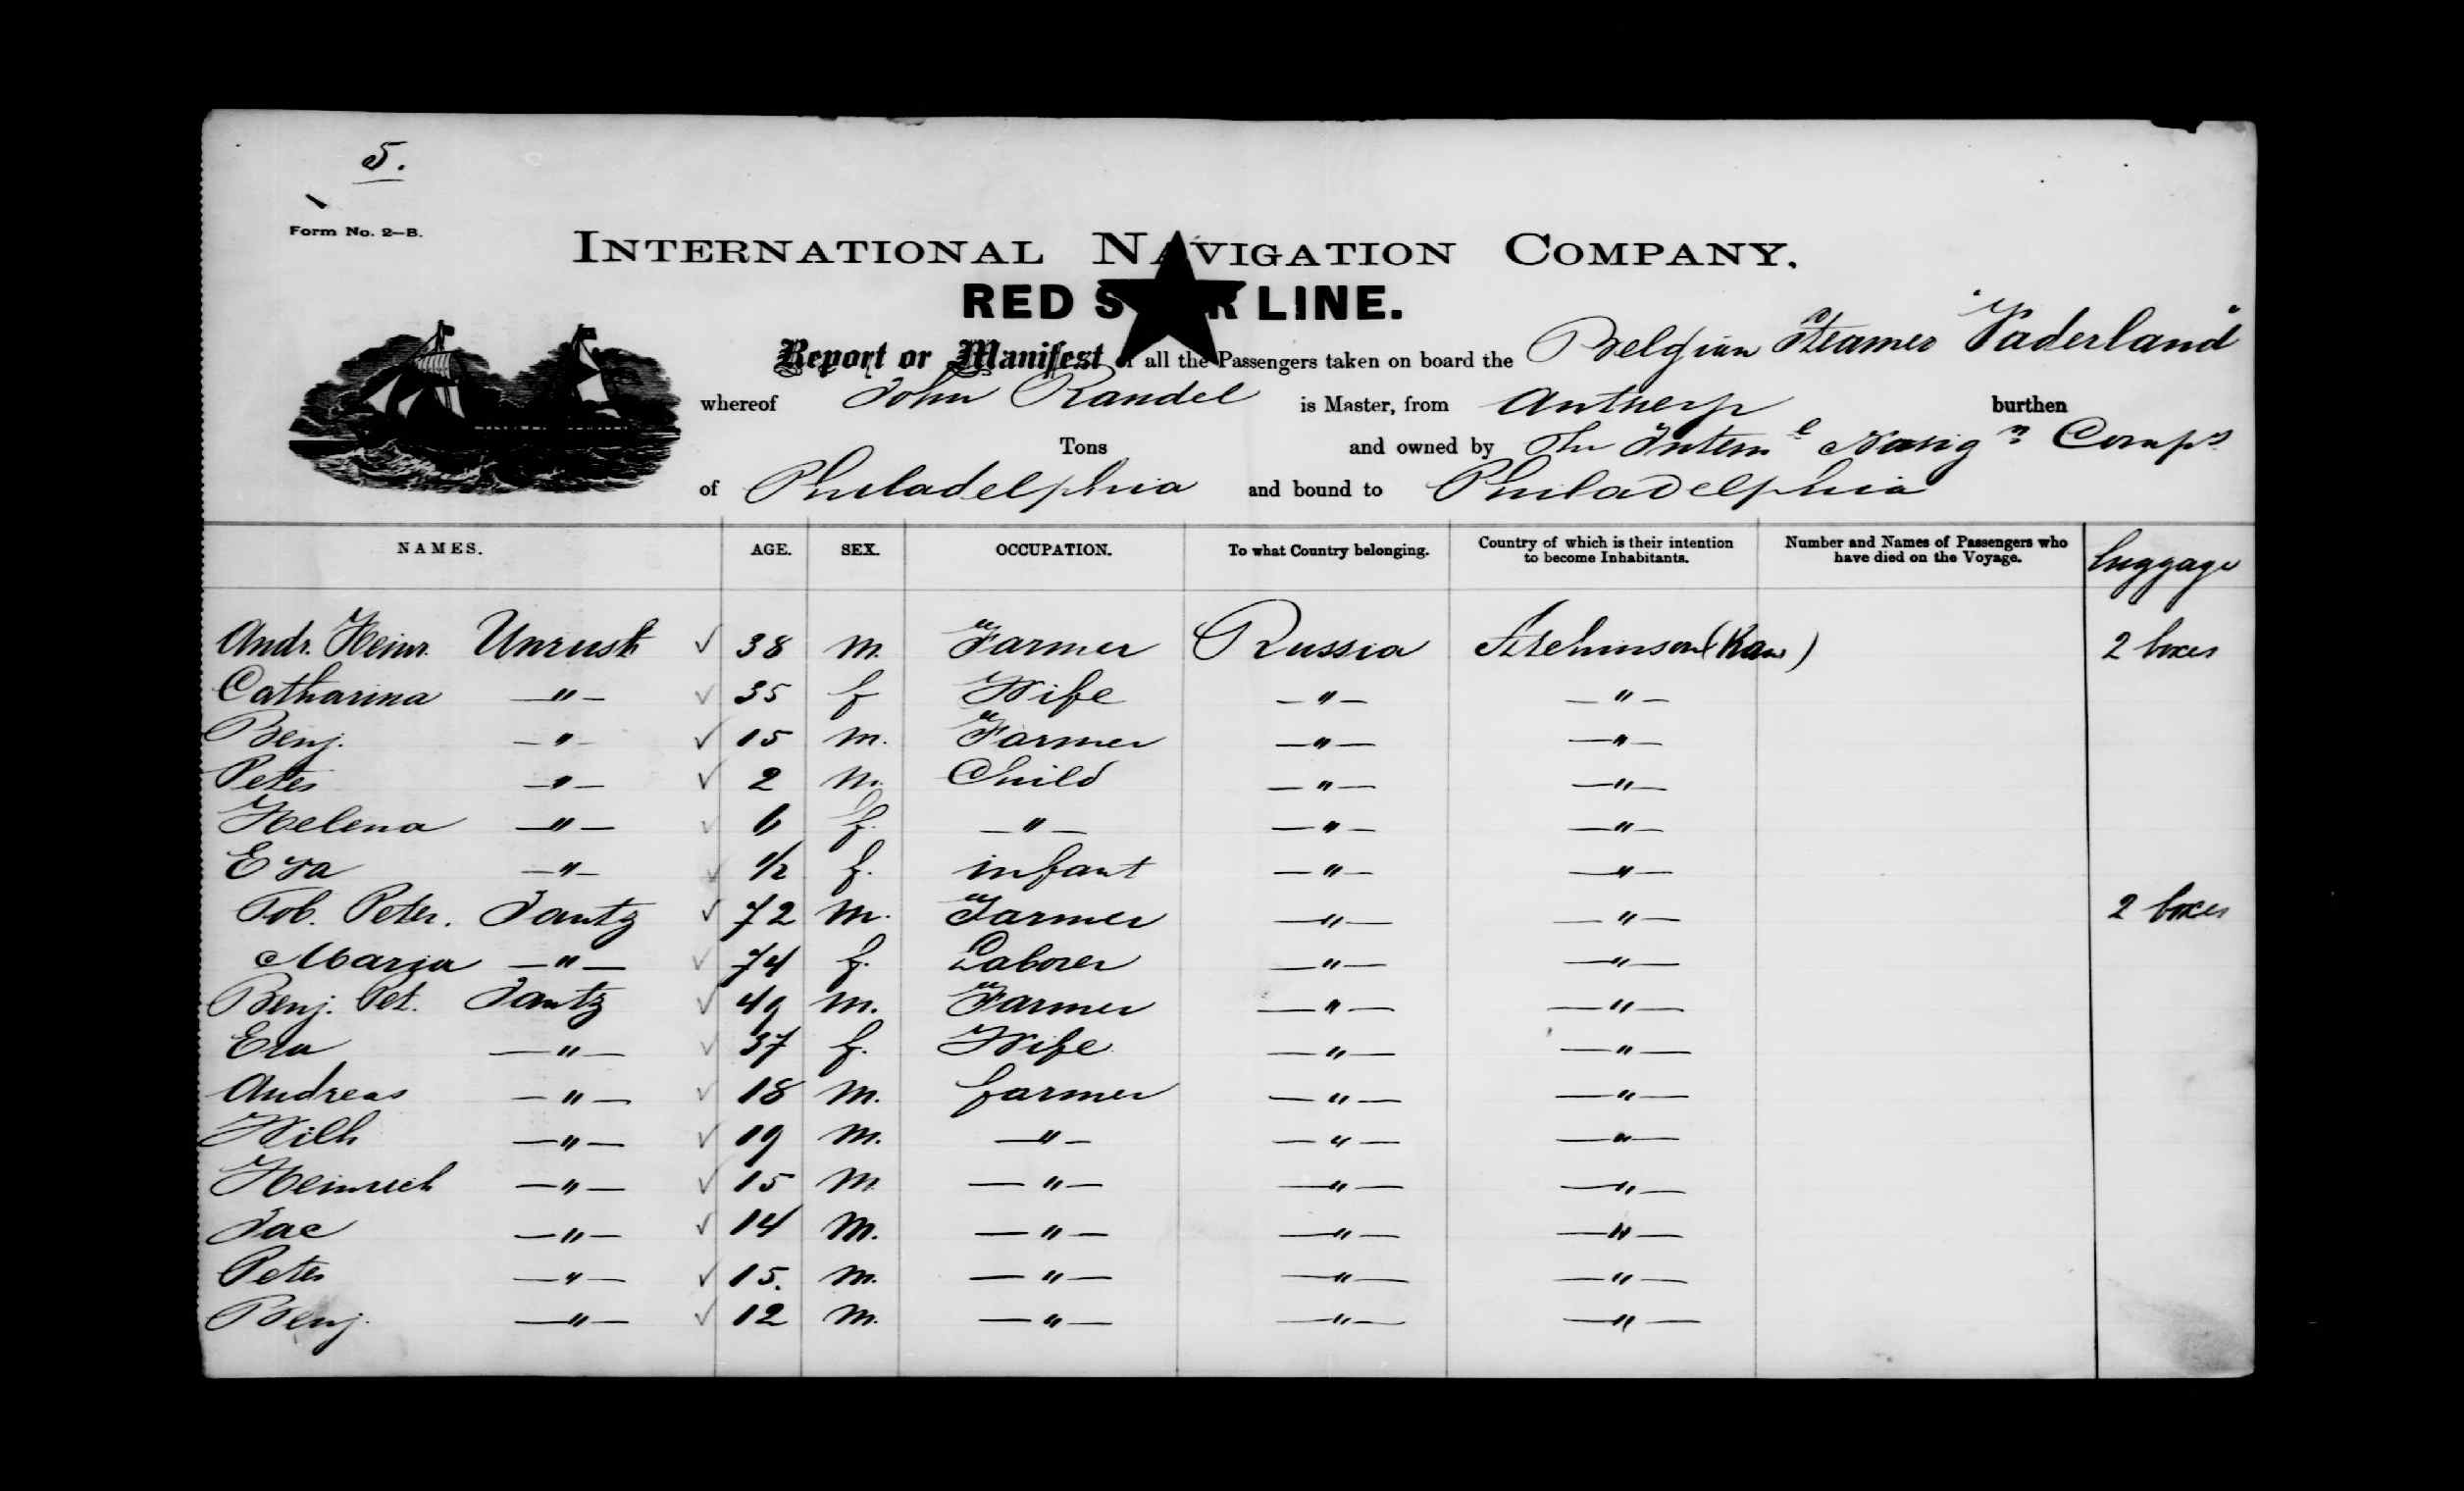 5.
Form No. 2—B.
INTERNATIONAL NAVIGATION COMPANY.
RED STAR LINE.
Report or Manifest of all the Passengers taken on board the Belgian Steamer "Vaderland"
whereof John Randel is Master, from Antwerp burthen
Tons and owned by The Intern l Navig n Comps
of Philadelphia and bound to Philadelphia
NAMES. AGE. SEX. OCCUPATION. To what Country belonging. Country of which is their intention to become Inhabitants. Number and Names of Passengers who have died on the Voyage. luggage
Andr. Heinr. Unrush ✓ 38 m. Farmer Russia Atchinson (Kan) 2 boxes
Catharina —"— ✓ 35 f Wife —"— —"—
Benj. —"— ✓ 15 m. Farmer —"— —"—
Peter —"— ✓ 2 m. Child —"— —"—
Helena —"— ✓ f. —"— —"— —"—
Eva —"— ✓ 1/2 f. infant —"— —"—
Tob. Peter. Jantz ✓ 72 m. Farmer —"— —"— 2 boxes
Maria —"— ✓ 74 f. Laborer —"— —"—
Benj. Pet. Jantz ✓ 49 m. Farmer —"— —"—
Eva —"— ✓ 37 f. Wife —"— —"—
Andreas —"— ✓ 18 m. farmer —"— —"—
Wilh —"— ✓ 19 m. —"— —"— —"—
Heinrich —"— ✓ 15 m —"— —"— —"—
Jac —"— ✓ 14 m. —"— —"— —"—
Peter —"— ✓ 15. m. —"— —"— —"—
Benj. —"— ✓ 12 m. —"— —"— —"—